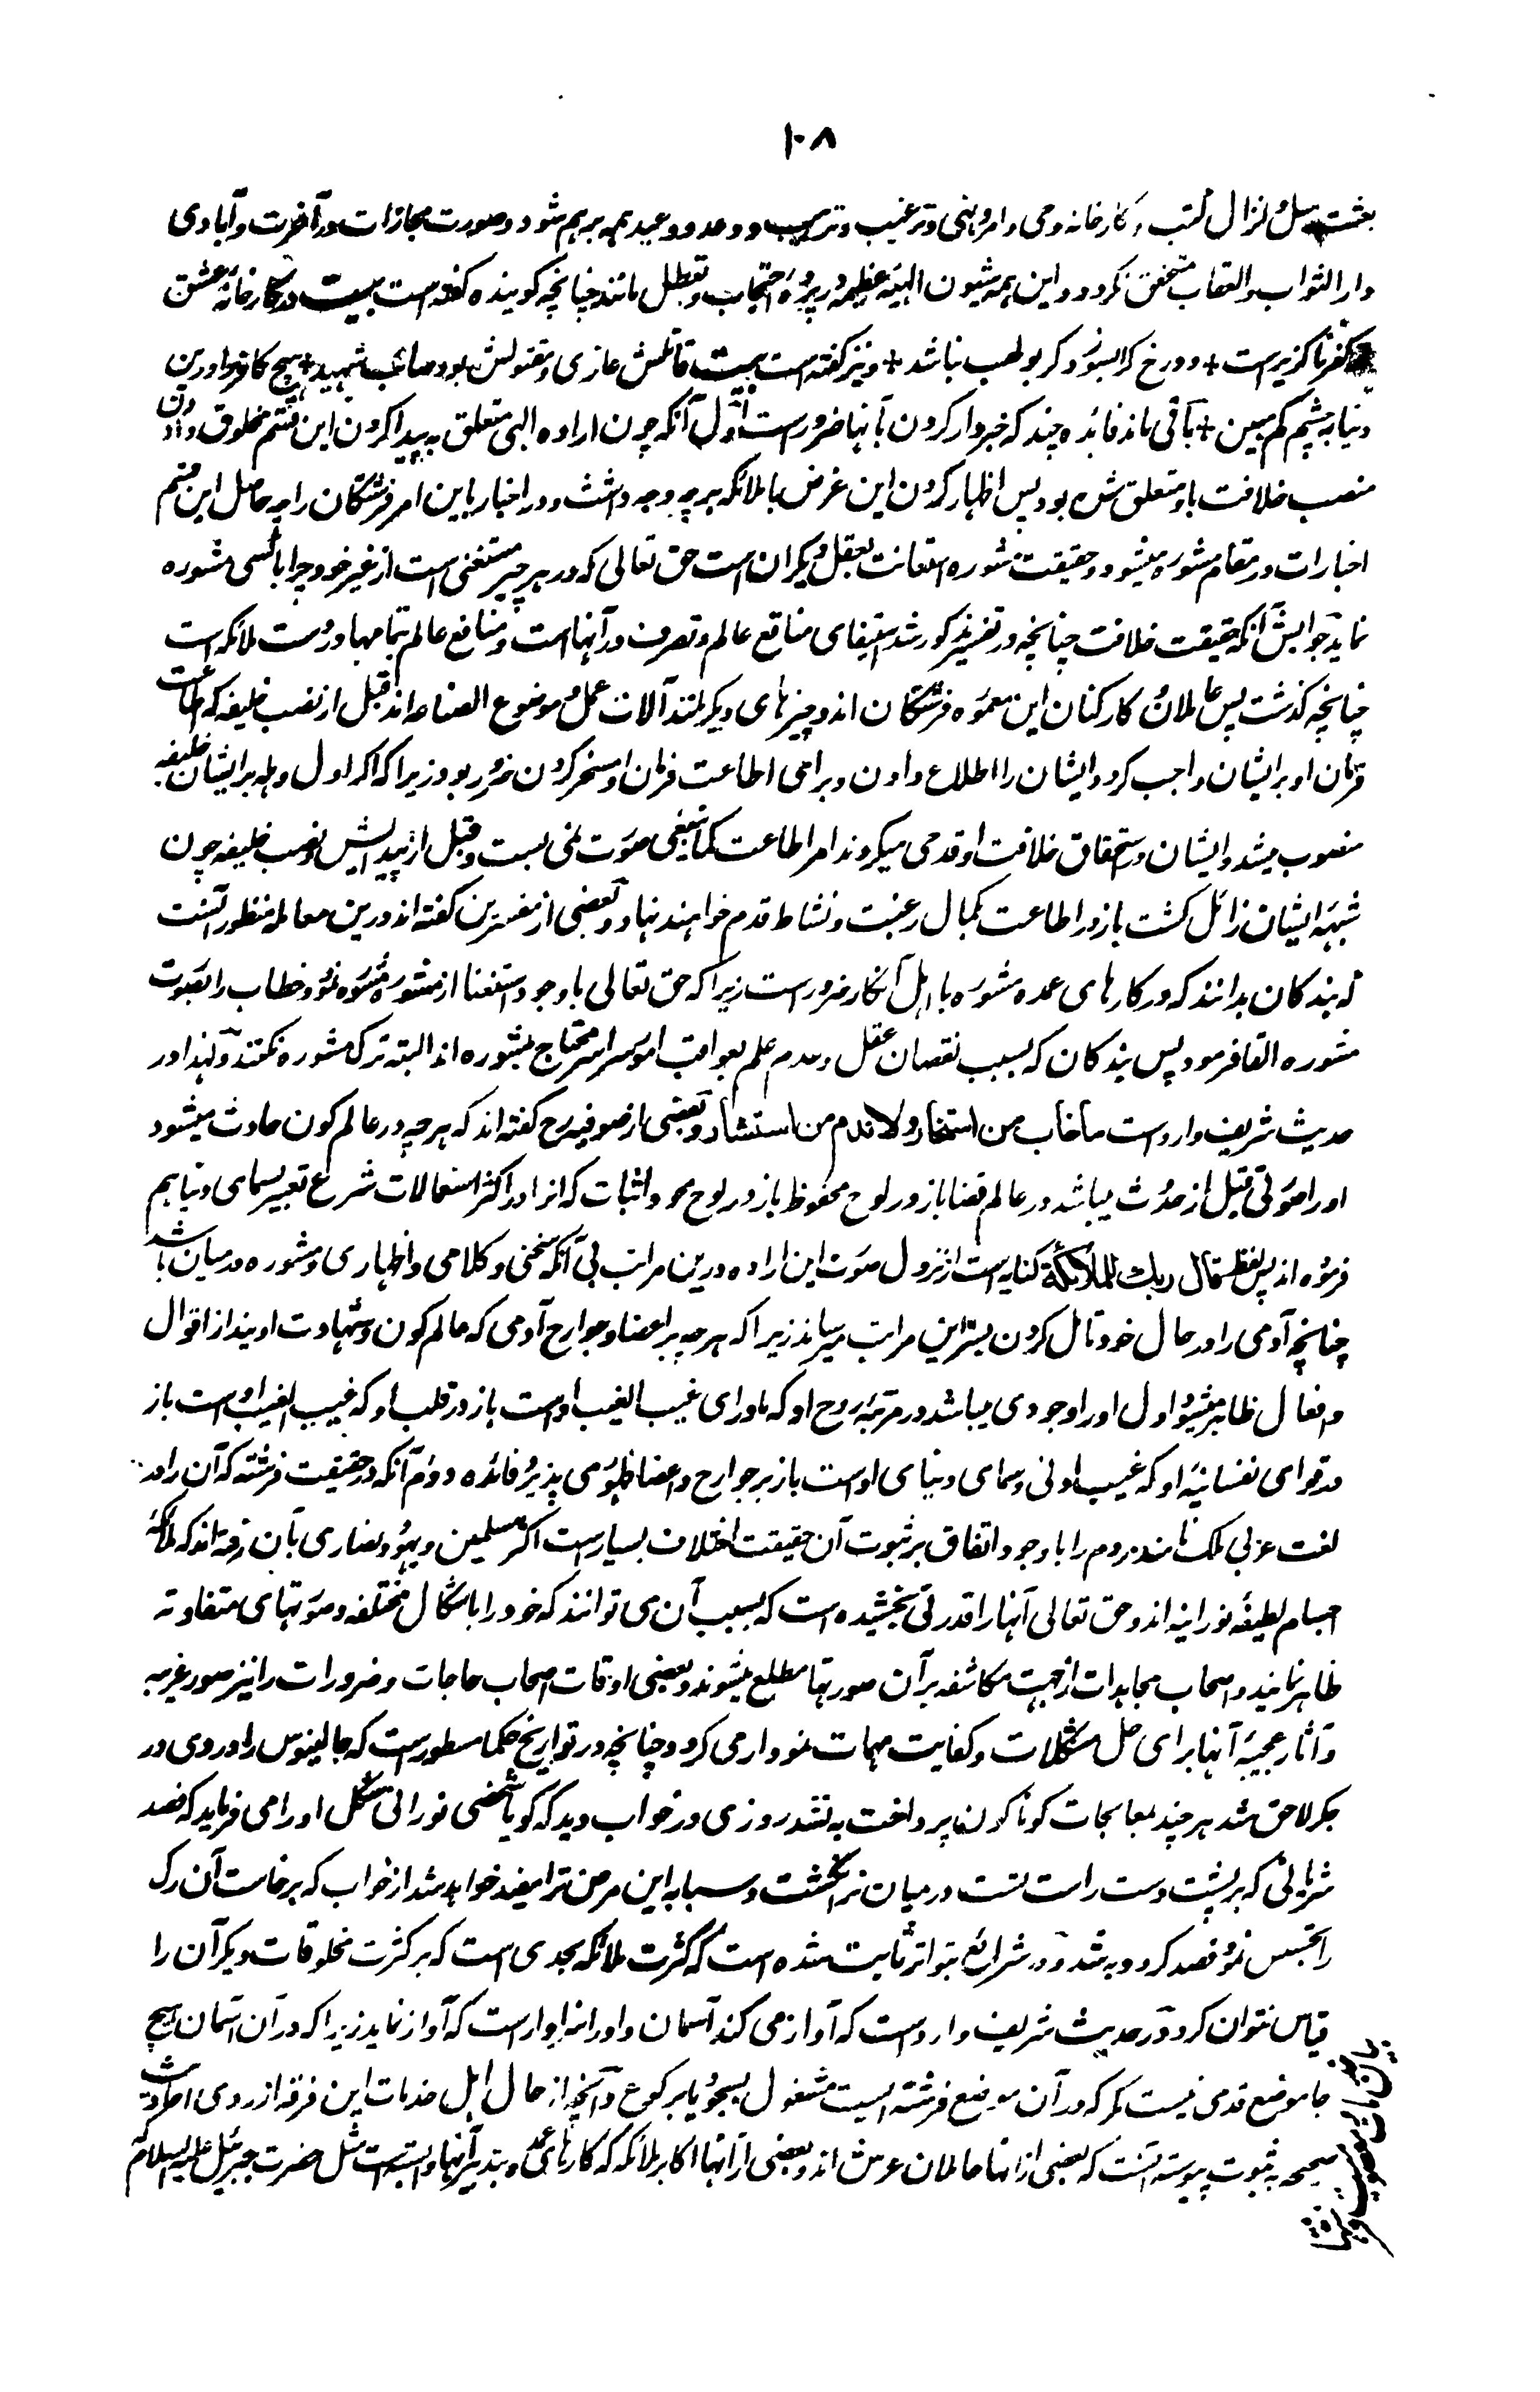 ۱۰۸
بعثت رسل و انزال کتب و کارخانه وحی و امر و نهی و ترغیب و ترهیب و وعد و وعید همه برهم شود و صورت مجازات در آخرت و آبادی
دار الثواب و العقاب متحقق نگردد و این همه شیون الهیه عظیمه در پرده احتجاب و تعطل مانند چنانچه گوینده گفته است بیت در کارخانه عشق
کفر ناگزیر است + دوزخ کرا بسوزد گر بولهب نباشد + و نیز گفته است بیت قاتلش غازی و مقتولش بود صائب شهید + هیچ کافر را درین
دنیا بچشم کم مبین + باقی ماند فائده چند که خبردار کردن بآنها ضرور است اول آنکه چون اراده الهی متعلق به پیدا کردن این قسم مخلوق و دادن
منصب خلافت باو متعلق شده بود پس اظهار کردن این غرض با ملائکه بر چه وجه داشت و در اخبار باین امر فرشتگان را چه حاصل این قسم
اخبارات در مقام مشوره میشود و حقیقت مشوره استعانت بعقل دیگران است حق تعالی که در هر چیز مستغنی است از غیر خود چرا با کسی مشوره
نماید جوابش آنکه حقیقت خلافت چنانچه در تفسیر مذکور شد استیفای منافع عالم و تصرف در آنها است و منافع عالم بتمامها در دست ملائکه است
چنانچه گذشت پس عاملان و کارکنان این معموره فرشتگان اند و چیزهای دیگر مانند آلات عمل و موضوع الصناعه اند قبل از نصب خلیفه که اطاعت
فرمان او بر ایشان واجب گردد ایشان را اطلاع دادن و برای اطاعت فرمان او مسخر کردن ضرور بود زیرا که اگر اول وهله بر ایشان خلیفه
منصوب میشد و ایشان در استحقاق خلافت او قدحی میکردند امر اطاعت کما ینبغی صورت نمی بست و قبل از پیدایش و نصب خلیفه چون
شبهه ایشان زائل گشت باز در اطاعت بکمال رغبت و نشاط قدم خواهند نهاد و بعضی از مفسرین گفته اند درین معامله منظور آنست
که بندگان بدانند که در کارهای عمده مشوره با اهل آن کار ضرور است زیرا که حق تعالی با وجود استغنا از مشوره مشوره نمود و خطاب را بصورت
مشوره القا فرمود پس بندگان که بسبب نقصان عقل و عدم علم بعواقب امور سراسر محتاج مشوره اند البته ترک مشوره نکنند و لهذا در
حدیث شریف وارد است ما خاب من استخار و لا ندم من استشار و بعضی از صوفیه رح گفته اند که هر چه در عالم کون حادث میشود
او را صورتی قبل از حدوث میباشد در عالم قضا باز در لوح محفوظ باز در لوح محو و اثبات که آنرا در اکثر استعمالات شرع تعبیر بسمای دنیا هم
فرموده اند پس لفظ قال ربك للملائكة کنایه است از نزول صورت این اراده درین مراتب بی آنکه سخنی و کلامی و اظهاری و مشوره درمیان باشد
چنانچه آدمی را در حال خود تامل کردن بسر این مراتب میرساند زیرا که هر چه بر اعضا و جوارح آدمی که عالم کون و شهادت اویند از اقوال
و افعال ظاهر میشود اول او را وجودی میباشد در مرتبه روح او که ماورای غیب الغیب اوست باز در قلب او که غیب الغیب اوست باز
در قوای نفسانیه او که غیب اولی و سمای دنیای اوست باز بر جوارح و اعضا ظهور می پذیرد فائده دوم آنکه در حقیقت فرشته که آن را در
لغت عربی ملک نامند مردم را با وجود اتفاق بر ثبوت آن حقیقت اختلاف بسیار است اکثر مسلمین و یهود و نصاری بآن رفته اند که ملائکه
اجسام لطیفه نورانیه اند و حق تعالی آنها را قدرتی بخشیده است که بسبب آن می توانند که خود را باشکال مختلفه و صورتهای متفاوته
ظاهر نمایند و اصحاب مجاهدات از جهت مکاشفه بر آن صورتها مطلع میشوند و بعضی اوقات اصحاب حاجات و ضرورات را نیز صور غریبه
و آثار عجیبه آنها برای حل مشکلات و کفایت مهمات نمودار می گردد چنانچه در تواریخ حکما مسطور است که جالینوس را دردی در
جگر لاحق شد هر چند بمعالجات گوناگون پرداخت به نشد روزی در خواب دید که گویا شخصی نورانی شکل او را می فرماید که فصد
شریانی که بر پشت دست راست تست درمیان نر انگشت و سبابه این مرض ترا مفید خواهد شد از خواب که برخاست آن رگ
را تجسس نموده فصد کرد و به شد و در شرائع بتواتر ثابت شده است که کثرت ملائکه بحدی است که بر کثرت مخلوقات دیگر آن را
قیاس نتوان کرد و در حدیث شریف وارد است که آواز می کند آسمان و او را سزاوار است که آواز نماید زیرا که در آن آسمان هیچ
جا موضع قدمی نیست مگر که در آن موضع فرشته ایست مشغول بسجود یا برکوع و آنچه از حال اهل خدمات این فرقه از روی احادیث
صحیحه به ثبوت پیوسته آنست که بعضی از انها حاملان عرش اند و بعضی از آنها اکابر ملائکه که کارهای عمده بتدبیر آنها وابسته است مثل حضرت جبرئیل علیه السلام که